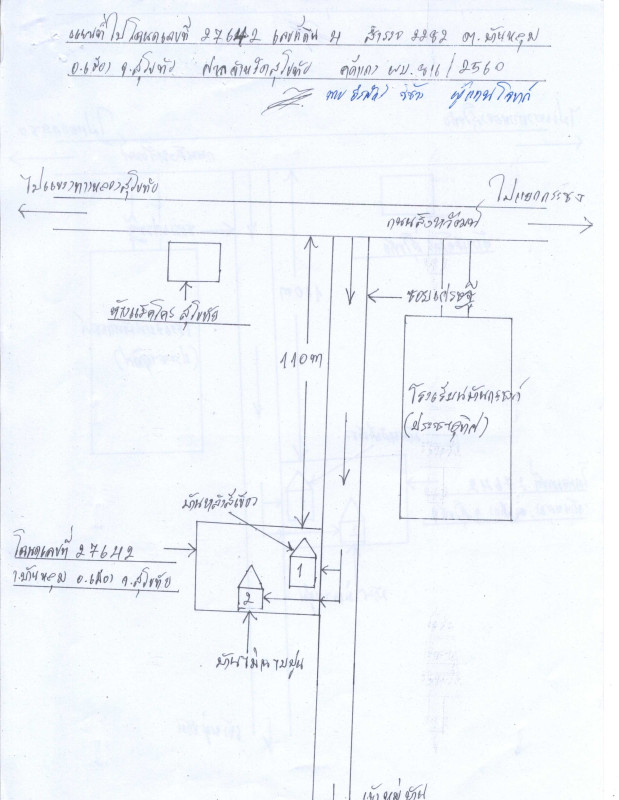 แผนที่ไปโฉนดเลขที่ 27642 เลขที่ดิน 4 สำรวจ 2282 ต.บ้านหลุม
อ.เมือง จ.สุโขทัย ศาลจังหวัดสุโขทัย คดีแดง ผบ. /2560
ผู้แทนโจทก์
ไปแขวงทางหลวงสุโขทัย
ไปแยกกระชง
ถนนสิงหวัฒน์
ห้างแม็คโคร สุโขทัย
ซอยเศรษฐี
110 m
โรงเรียนบ้าน
(ประชาอุทิศ)
บ้านหลังสีเขียว
โฉนดเลขที่ 27642
ต.บ้านหลุม อ.เมือง จ.สุโขทัย
1
2
บ้านไม้
เข้าหมู่บ้าน